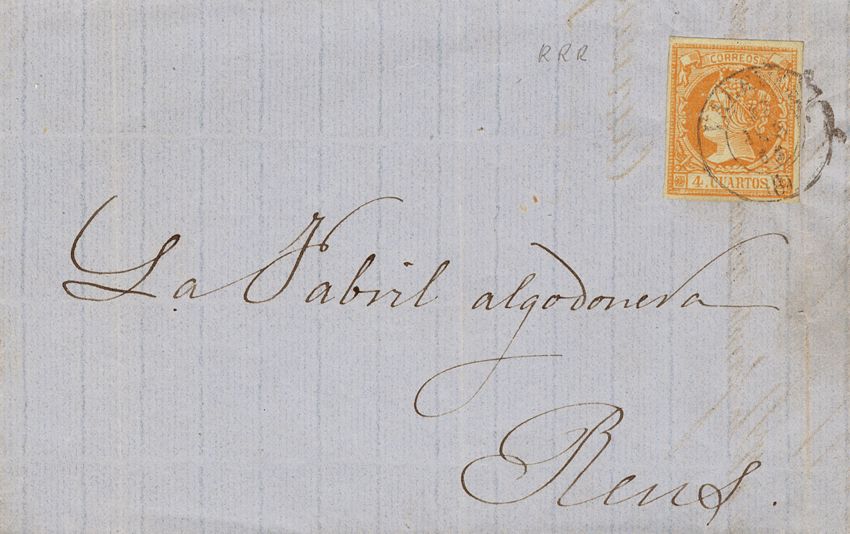 RRR
CORREOS
4 CUARTOS
La Fabril algodonera
Reus.